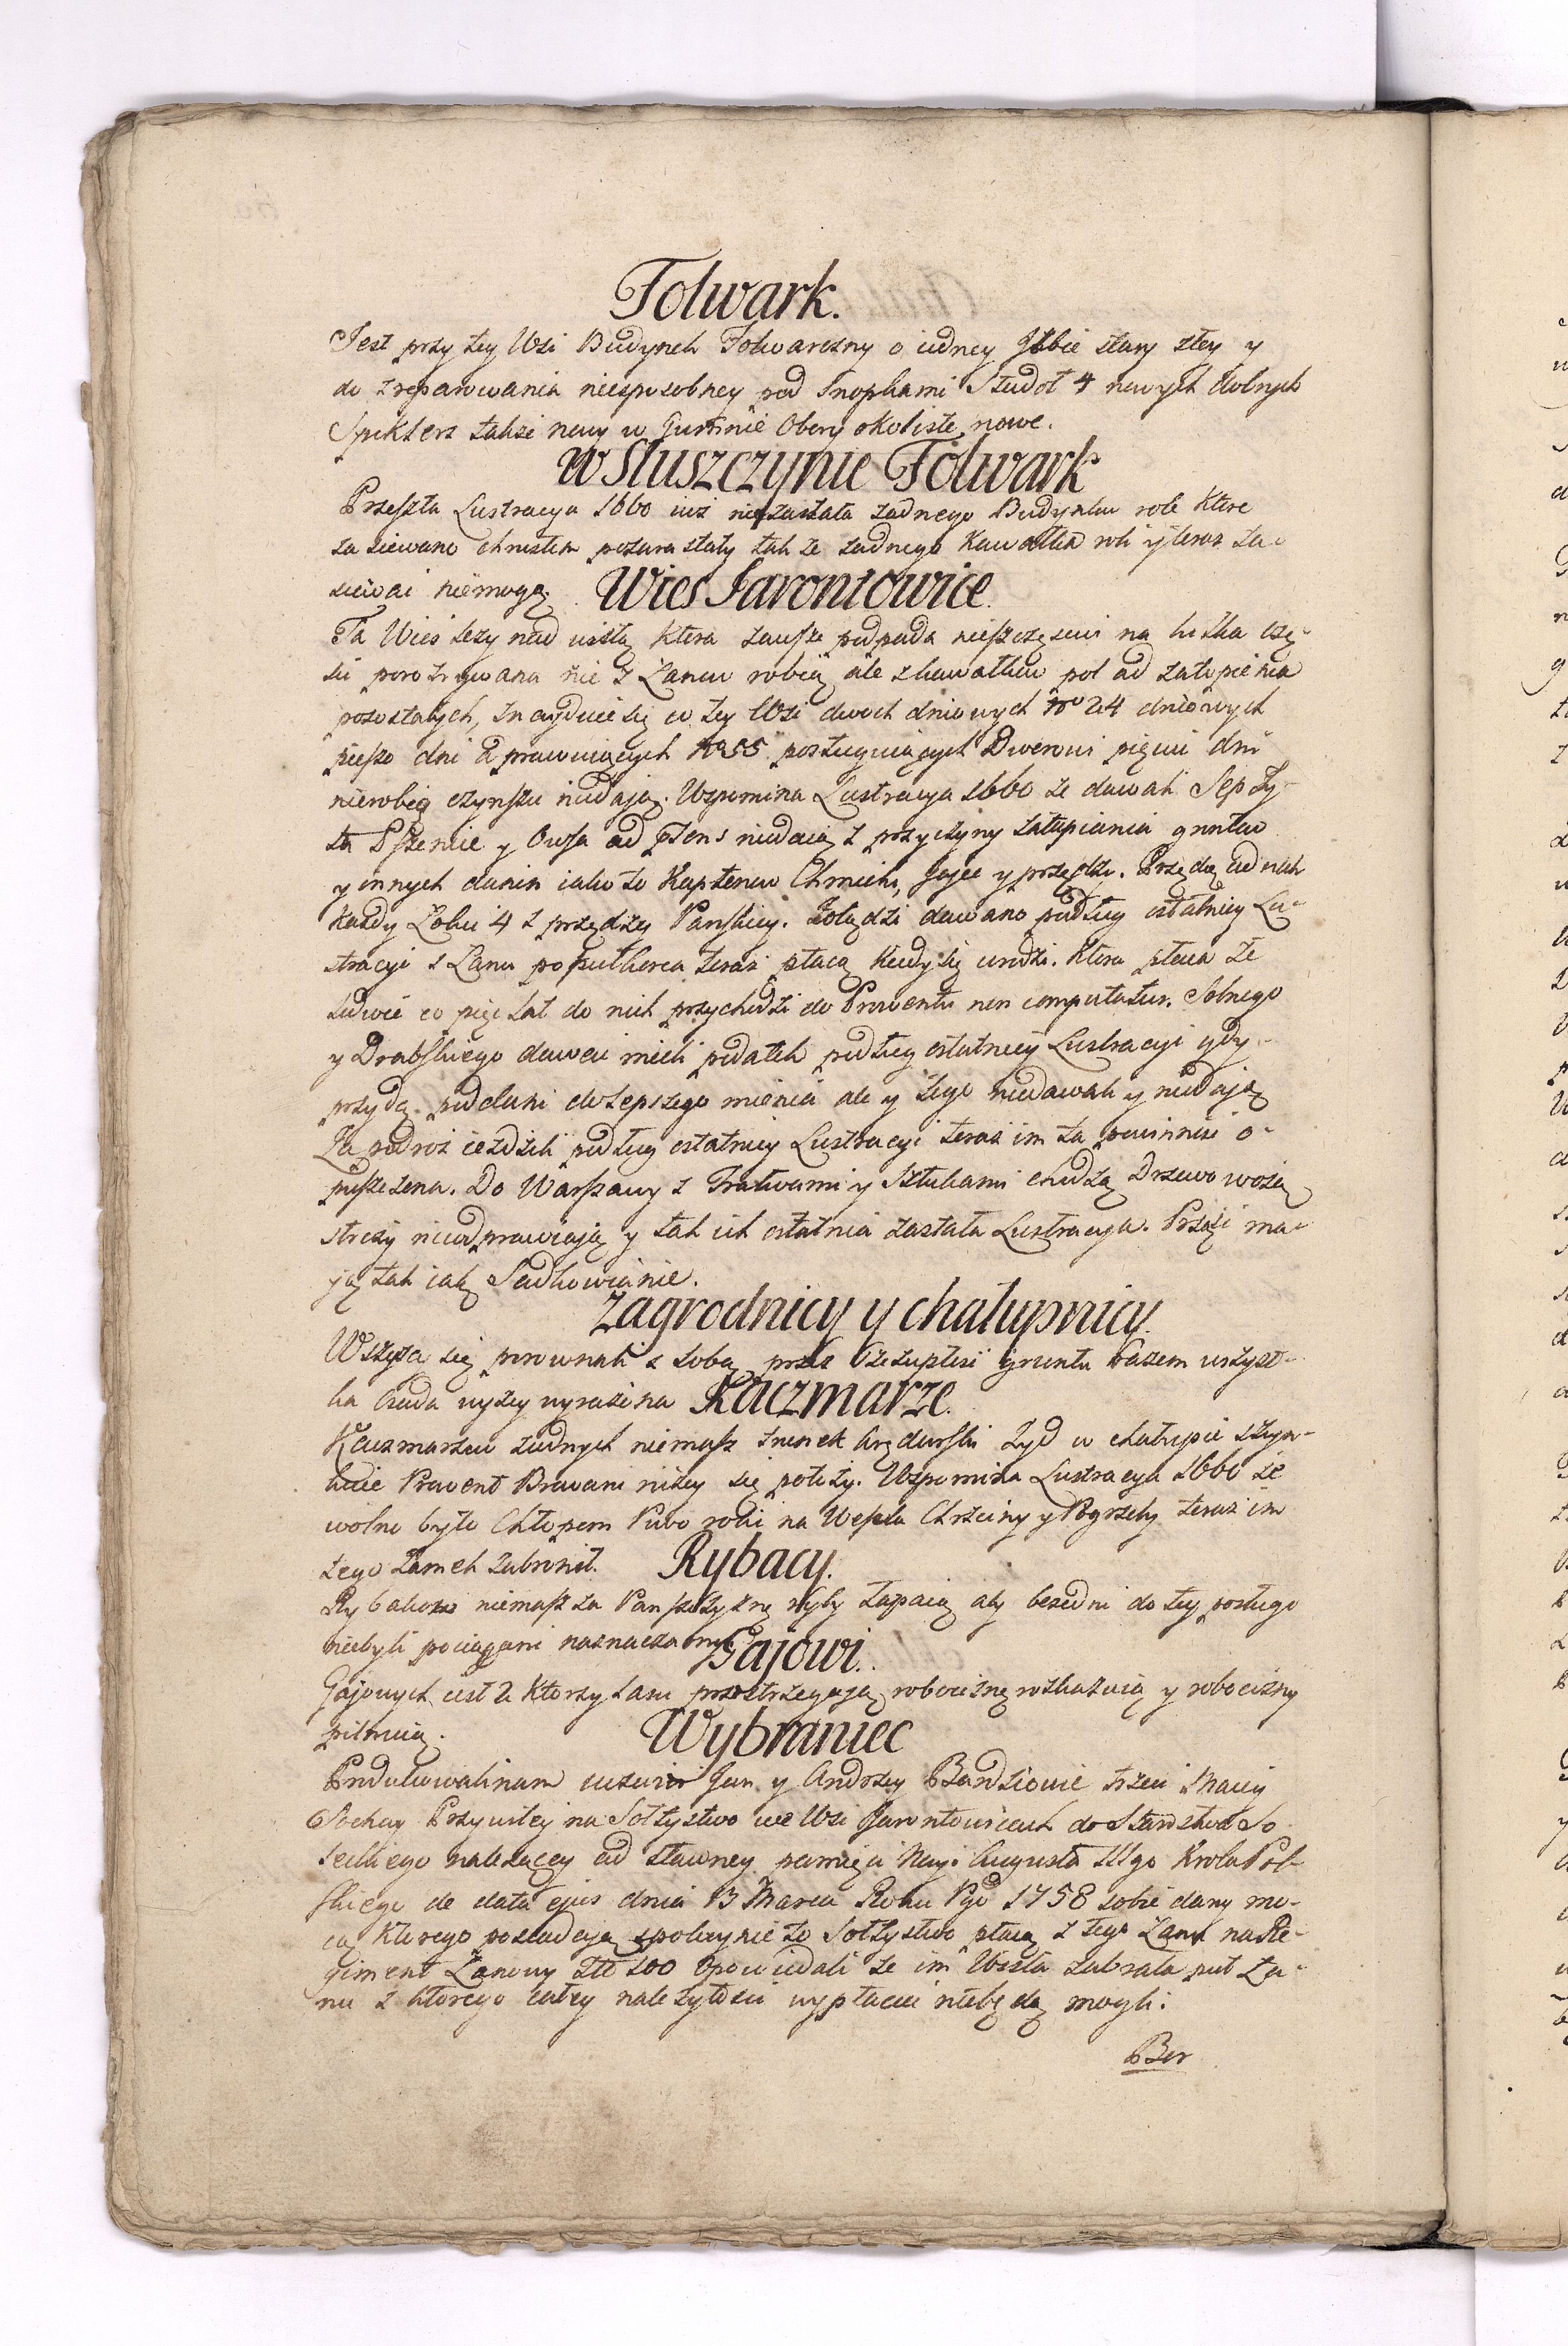 Folwark.
Jest przy tey Wsi Budynek Folwarczny o iedney Izbie stary zły y
do zreparowania niesposobney pod Snopkami Stodoł 4 nowych dolnych
Spiklerz także nowy w Gumnie Obory okoliste nowe.
w Słuszczynie Folwark
Przeszła Lustracya 1660 iuż niezastała żadnego Budynku role ktore
zasiewano chrustem pozarastały tak ze żadnego kawałka roli y teraz za-
siewai niemogą. Wies Jarontowice.
Ta Wieś leży nad wisłą ktora zawsze podpada nieszczęsciu na kilka czę-
sci porozrywana nie z Łanow robią ale z kawałkow pol od zatopienia
pozostałych, znayduie się w tey Wsi dwoch dniowych No 24 dniowych
pieszo dni odprawuiących No 55 posługuiących Dworowi pięciu dni
nierobią czynszu niedają. Wspomina Lustracya 1660 że dawali Sep Ży-
ta Pszenice y Owsa od tens niedaią z przyczyny zatapiania gruntow
y innych danin iako to Kapłonow Chmielu, Jajec y przędzy. Przędą od nich
każdy Łokci 4 z przędzy Pańskiey. Żołędzi dawano podług ostatniey Lu-
stracyi z Łanu po pułkorca teraz płacą kiedy się urodzi. Ktora płaca że
ledwie co pięć Lat do nich przychodzi do Prowentu non computatur. Solnego
y Drabskiego dawać mieli podatek podług ostatniey Lustracyi gdy
przydą poddani do lepszego mienia ale y tego niedawali y niedają
Za podroż ieździli podług ostatniey Lustracyi teraz im ta powinność o-
puszczona. Do Warszawy z Tratwami y Sztukami chodzą Drzewo wożą
stroży nieodprawiają y tak ich ostatnia zastała Lustracya. Pszaki ma-
ją tak iak Sadkowianie.
Zagrodnicy y chałupnicy.
Wszyscy się porownali z sobą przez Szczupłość gruntu Razem wszyst-
ka Osada wyżey wyrażona Kaczmarze.
Kaczmarzow żadnych niemasz trunek Arędarski Żyd w chałupie szyn-
kuie Prowent Browaru niżey się położy. Wspomina Lustracya 1660 że
wolno było Chłopom Piwo robić na Wesela Chrzciny y Pogrzeby teraz im
tego Zamek zabronił. Rybacy.
Rybakow niemasz za Pańszczyznę ryby łapaią aby bezedni do tey posługi
niebyli pociągani naznaczamy. Gajowi.
Gajowych iest 2 ktorzy Lasu przestrzegają robociznę rozkazuią y robocizny
pilnuią. Wybraniec
Produkowali nam uczciwi Jan y Andrzey Bandziowie trzeci Maciey
Sochay Przywiley na Sołtystwo we Wsi Jarontowicach do Starostwa So-
leckiego należącey od sławney pamięci Nayi. Augusta IIIgo Krola Pol-
skiego de data ejus dnia 13 Marca Roku Pgo 1758 sobie dany mo-
cą ktorego posiadają spolnynie to Sołtystwo płacą z tego Łanu na Re-
giment Łanowy Zło 100 Opowiadali że im Wisła zabrała puł Ła-
nu z ktorego całey należytości wypłacić niebędą mogli.
Ber